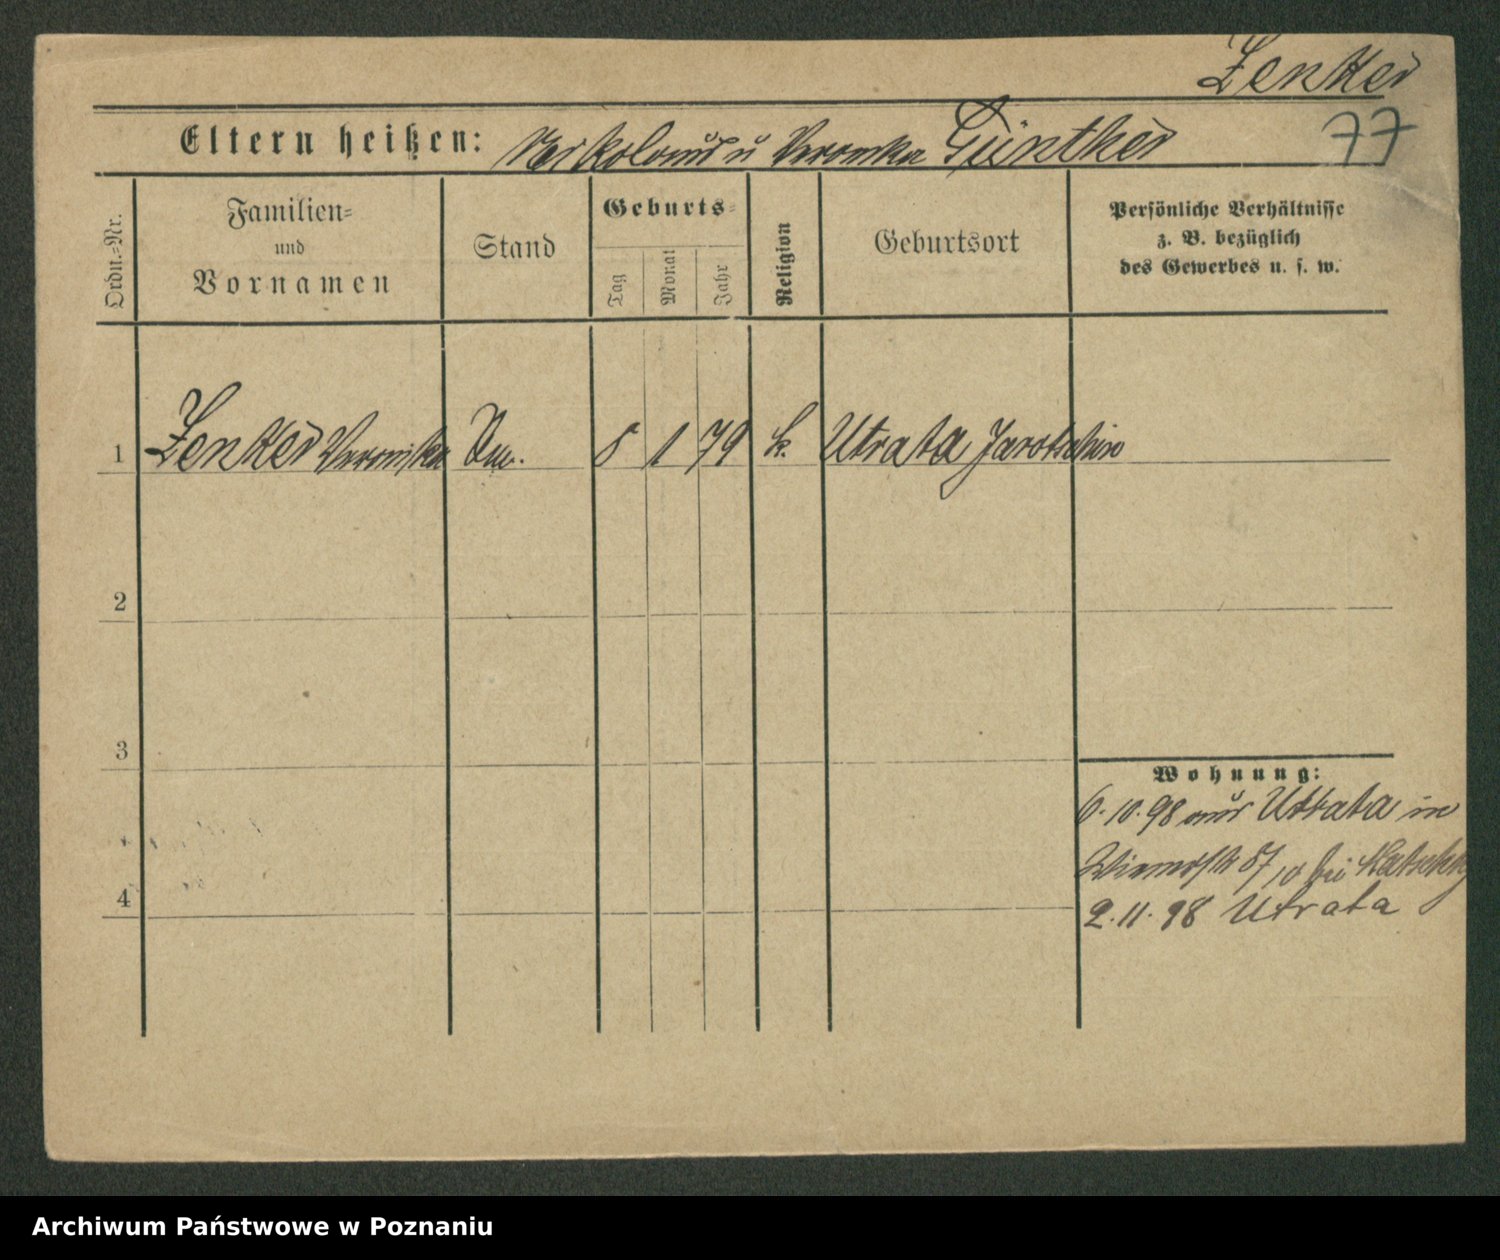 Zenker
77
Eltern heißen: Nikolaus u Veronika Günther
Ordn.-Nr.
Familien- und Vornamen
Stand
Geburts-
Tag
Monat
Jahr
Religion
Geburtsort
Persönliche Verhältnisse
z. B. bezüglich
des Gewerbes u. s. w.
1 Zenker Veronika 8 1 79 k. Utrata Jarotschin
2
3
Wohnung:
6.10.98 aus Utrata in
87, bei
4
2.11.98 Utrata
Archiwum Państwowe w Poznaniu